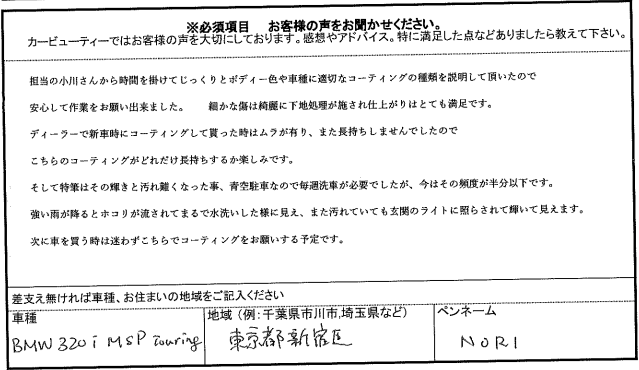 ※必須項目　お客様の声をお聞かせください。
カービューティーではお客様の声を大切にしております。感想やアドバイス。特に満足した点などありましたら教えて下さい。
担当の小川さんから時間を掛けてじっくりとボディー色や車種に適切なコーティングの種類を説明して頂いたので
安心して作業をお願い出来ました。　細かな傷は綺麗に下地処理が施され仕上がりはとても満足です。
ディーラーで新車時にコーティングして貰った時はムラが有り、また長持ちしませんでしたので
こちらのコーティングがどれだけ長持ちするか楽しみです。
そして特筆はその輝きと汚れ難くなった事、青空駐車なので毎週洗車が必要でしたが、今はその頻度が半分以下です。
強い雨が降るとホコリが流されてまるで水洗いした様に見え、また汚れていても玄関のライトに照らされて輝いて見えます。
次に車を買う時は迷わずこちらでコーティングをお願いする予定です。
差支え無ければ車種、お住まいの地域をご記入ください
車種
BMW 320i MSP Touring
地域（例：千葉県市川市,埼玉県など）
東京都新宿区
ペンネーム
NORI